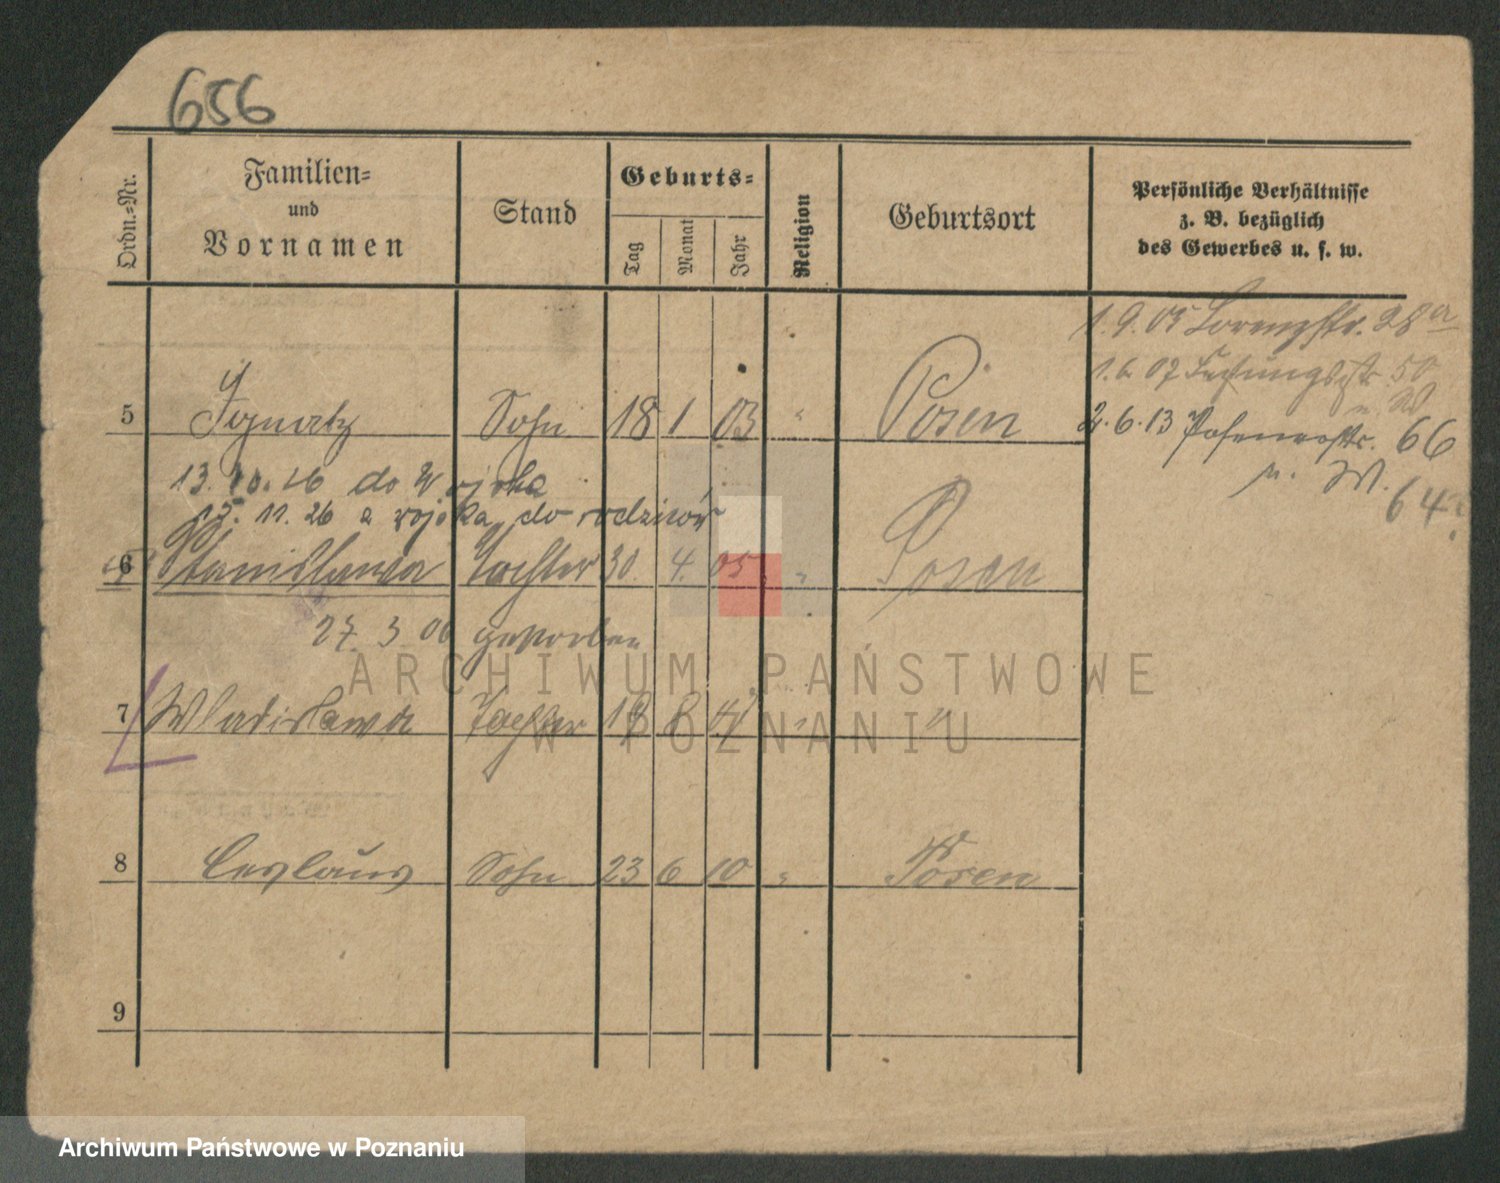 656
Ordn.=Nr.
Familien=
und
Vornamen
Stand
Geburts=
Tag
Monat
Jahr
Religion
Geburtsort
Persönliche Verhältnisse
z. B. bezüglich
des Gewerbes u. s. w.
1.9.05 Lorenzstr. 28a
1.6.07 50
2.6.13 66
u. W. 64
5 Ignatz Sohn 18 1 03 " Posen
13.10.26 do Wojska
15. 11. 26 z wojska do rodziców
6 Stanislawa Tochter 30. 4. 05 " Posen
27. 3 06 gestorben
7 Wladislawa Tochter 19 8 " "
8 Ceslaus Sohn 23 6 10 " Posen
9
ARCHIWUM PAŃSTWOWE
W POZNANIU
Archiwum Państwowe w Poznaniu